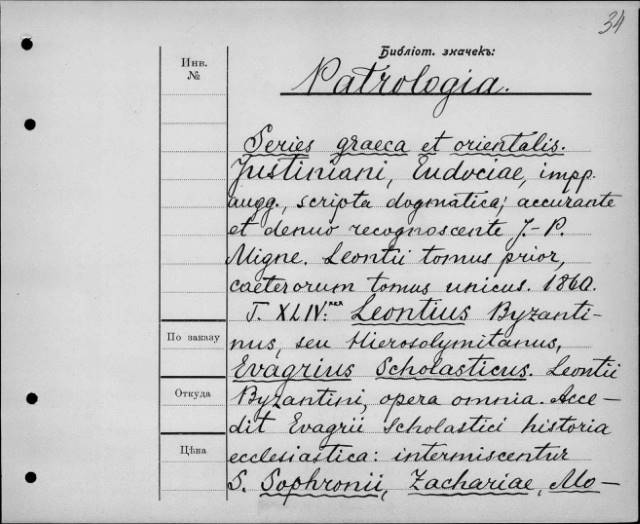 34
Библіот. значекъ:
Инв.
№
Patrologia.
Series graeca et orientalis.
Justiniani, Eudociae, impp.
augg., scripta dogmatica; accurante
et denuo recognoscente J.-P.
Migne. Leontii tomus prior,
caeterorum tomus unicus. 1860.
T. XLIV: Leontius Byzanti-
По заказу
nus, seu Hierosolymitanus,
Evagrius Scholasticus. Leontii
Откуда
Byzantini, opera omnia. Acce-
dit Evagrii Scholastici historia
Цѣна
ecclesiastica: intermiscentur
S. Sophronii, Zachariae, Mo-